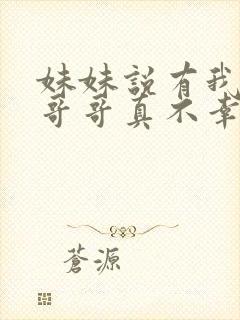 妹妹說有我
哥哥真不幸
蒼源